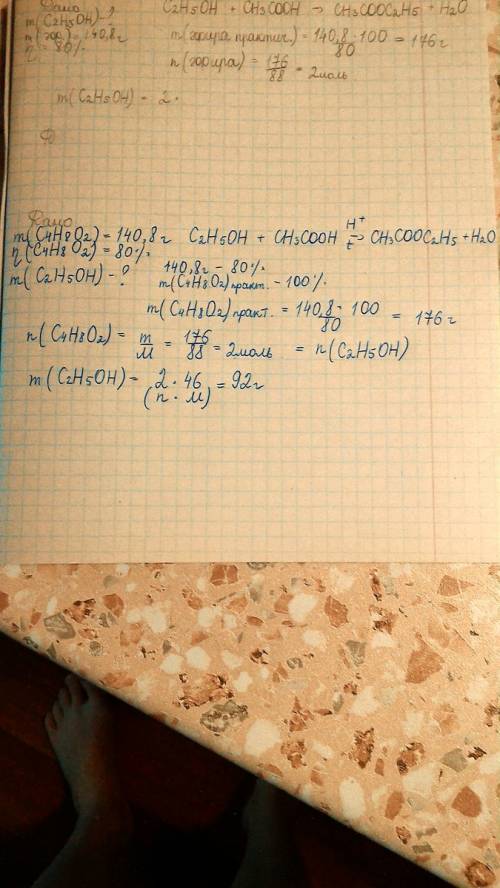 Дано
m(C2H5OH)-?
m(эфир.)=140,8г
η = 80%
C2H5OH + CH3COOH → CH3COOC2H5 + H2O
m(эфира практич.) = 140,8/80 · 100 = 176г
n(эфира) = 176/88 = 2моль
m(C2H5OH) = 2 ·
Дано
m(C4H8O2)=140,8г
η(C4H8O2)=80%
m(C2H5OH)-?
C2H5OH + CH3COOH H+ ⇄ t CH3COOC2H5 + H2O
140,8г - 80%
m(C4H8O2)практ. - 100%
m(C4H8O2)практ. = 140,8 · 100/80 = 176г
n(C4H8O2) = m/M = 176/88 = 2моль = n(C2H5OH)
m(C2H5OH) = 2 · 46 = 92г
(n · M)